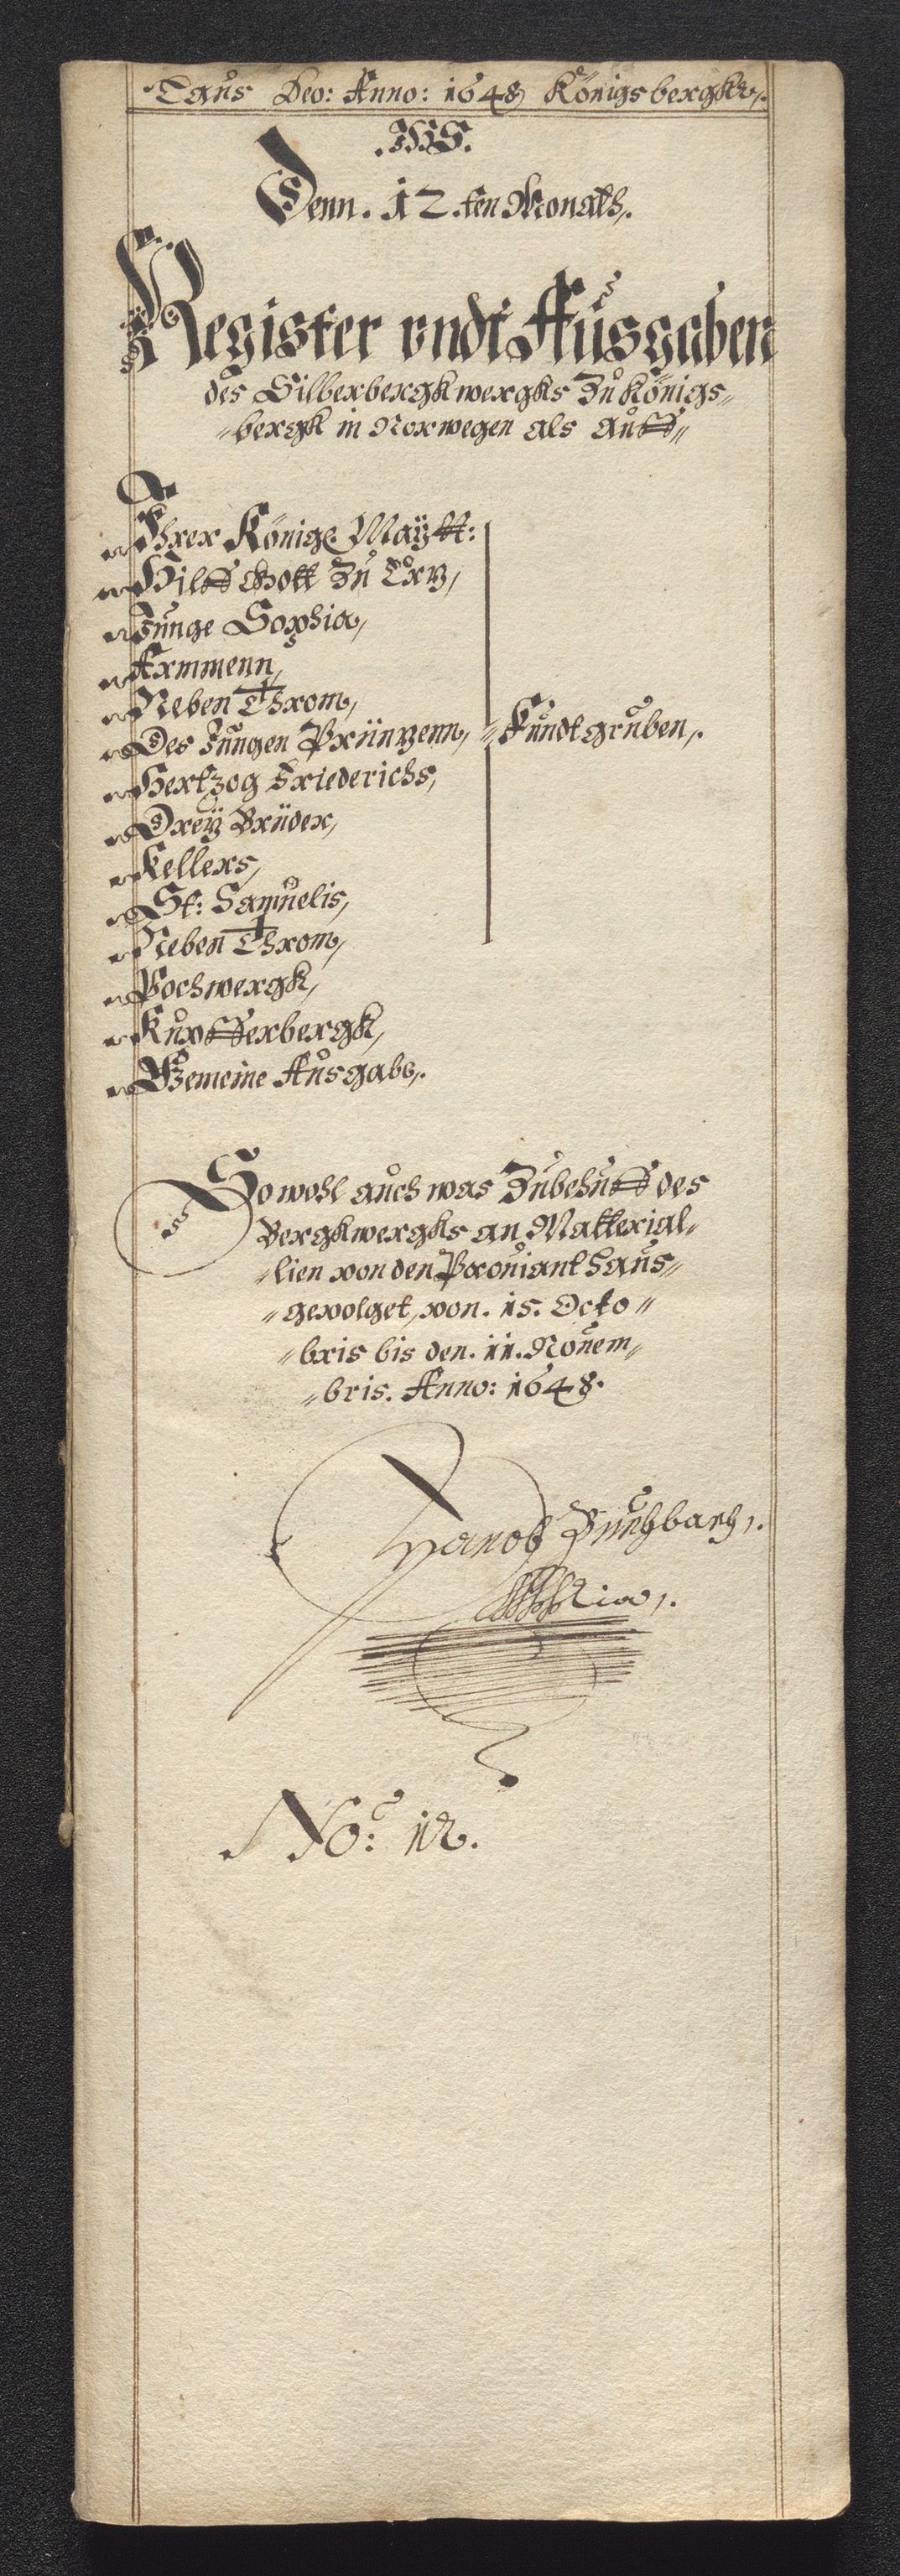 Laus Deo: Anno: 1648 Königsbergk,.
.IHS.
Denn. 12.ten Monath,.
Register vndt Ausgaben
des Silberbergkwergks Zu Königs„
„bergk in Norwegen als auff„
Ihrer Könige Maÿtt:
Hilff Gott Zu Ery,
Junge Sophia,
Armmenn,
Neben Throm,
Des Jungen Printzenn, „Fundtgruben,.
Hertzog Friederichs,
Dreÿ Brüder,
Kellers,
St: Samuelis,
Neben Throm,
Pochwergk,
Kupfferbergk,
Gemeine Ausgabe,.
So wohl auch was Zubehuff des
Bergkwergks an Matterial„
„lien von den Prouiant Haus„
„gevolget, von. 15. Octo„
„bris bis den. 11. Nouem„
„bris. Anno: 1648.
Jacob
No: 12.